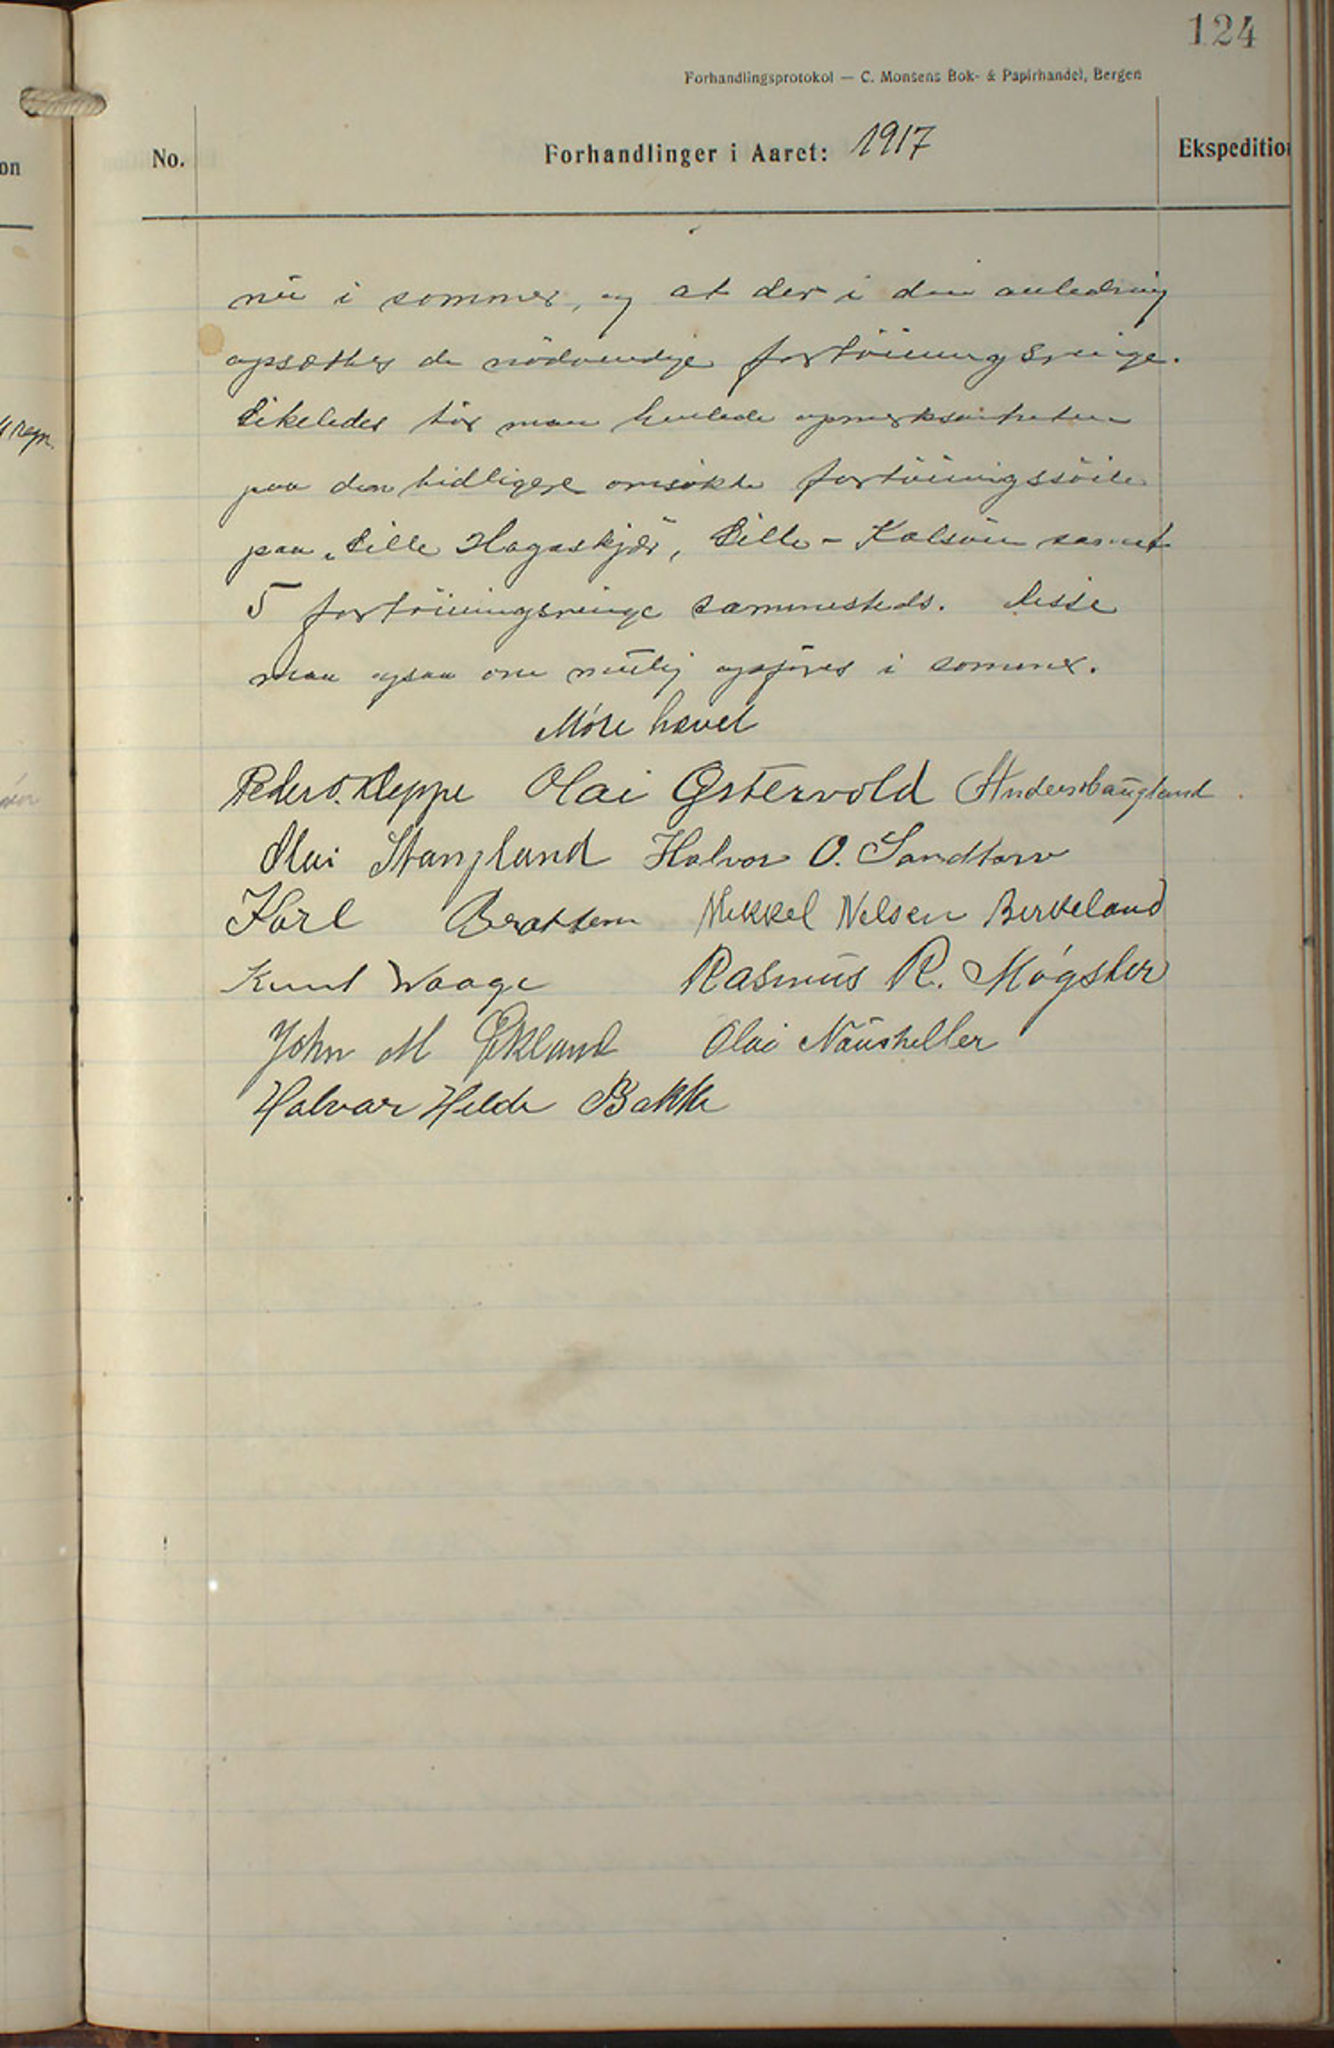 124
Forhandlingsprotokol — C. Monsens Bok- & Papirhandel, Bergen
on No. Forhandlinger i Aaret: 1917 Ekspedition
nu i sommer, og at der i den anledning
opsættes de nödvendige fortöiningsringe.
Likeledes tör man henlede opmerksomheten
paa den tidligere omsökte fortöiningssöile
paa „Lille Hagaskjær, Lille-Kalsöin samt
5 fortöiningsringe sammesteds. Disse
maa ogsaa om mulig opföres i sommer.
Möte hævet
Peder O. Kleppe Olai Østervold Anders Haugland
Olai Stangland Halvor O. Sandtorv
Karl Brattem Mikkel Nelsen Birkeland
Knut Waage Rasmus R. Møgster
John M Økland Olai Naustheller
Halvar Helde Bakke